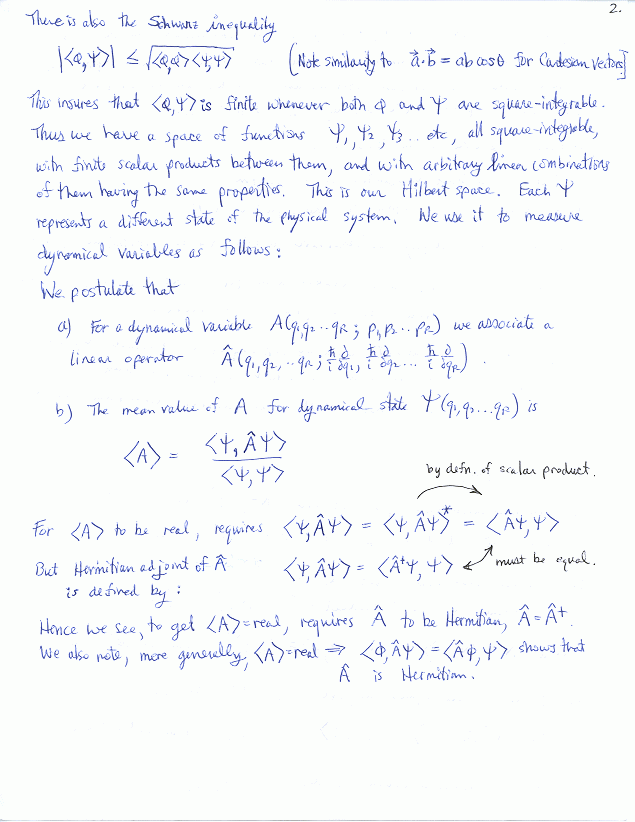 2.
There is also the Schwarz inequality
|<Φ,Ψ>| ≤ √<Φ,Φ><Ψ,Ψ> [Note similarity to a⃗·b⃗ = ab cosθ for Cartesian vectors]
This insures that <Φ,Ψ> is finite whenever both Φ and Ψ are square-integrable.
Thus we have a space of functions Ψ₁, Ψ₂, Ψ₃ .. etc, all square-integrable,
with finite scalar products between them, and with arbitrary linear combinations
of them having the same properties. This is our Hilbert space. Each Ψ
represents a different state of the physical system. We use it to measure
dynamical variables as follows:
We postulate that
a) For a dynamical variable A(q₁,q₂..q_R; p₁,p₂..p_R) we associate a
linear operator Â(q₁,q₂,..q_R; ħ/i ∂/∂q₁, ħ/i ∂/∂q₂... ħ/i ∂/∂q_R).
b) The mean value of A for dynamical state Ψ(q₁,q₂...q_R) is
<A> = <Ψ,ÂΨ> / <Ψ,Ψ>
by defn. of scalar product.
For <A> to be real, requires <Ψ,ÂΨ> = <Ψ,ÂΨ>* = <ÂΨ,Ψ>
But Hermitian adjoint of Â <Ψ,ÂΨ> = <Â⁺Ψ,Ψ> must be equal.
is defined by:
Hence we see, to get <A>=real, requires Â to be Hermitian, Â=Â⁺.
We also note, more generally, <A>=real ⇒ <Φ,ÂΨ> = <ÂΦ,Ψ> shows that
Â is Hermitian.